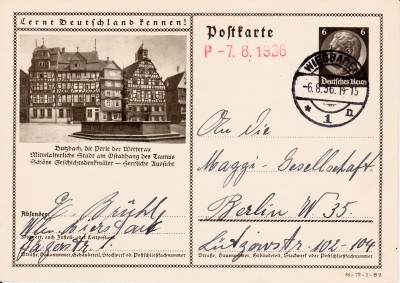 Lernt Deutschland kennen!
Postkarte
P -7. 8. 1936
6 6
Deutsches Reich
WIESBADEN
-6.8.36.19-15
* 1 n
Butzbach, die Perle der Wetterau
Mittelalterliche Stadt am Ostabhang des Taunus
Schöne Geschichtsdenkmäler — Herrliche Aussicht
An die
Maggi-Gesellschaft
Berlin W 35.
Lützowstr. 102-104
Absender:
Brühl
Wohnort, auch Zustell- oder Leitpostamt
Jägerstr. 1
Straße, Hausnummer, Gebäudeteil, Stockwerk oder Postschließfachnummer
Straße, Hausnummer, Gebäudeteil, Stockwerk oder Postschließfachnummer